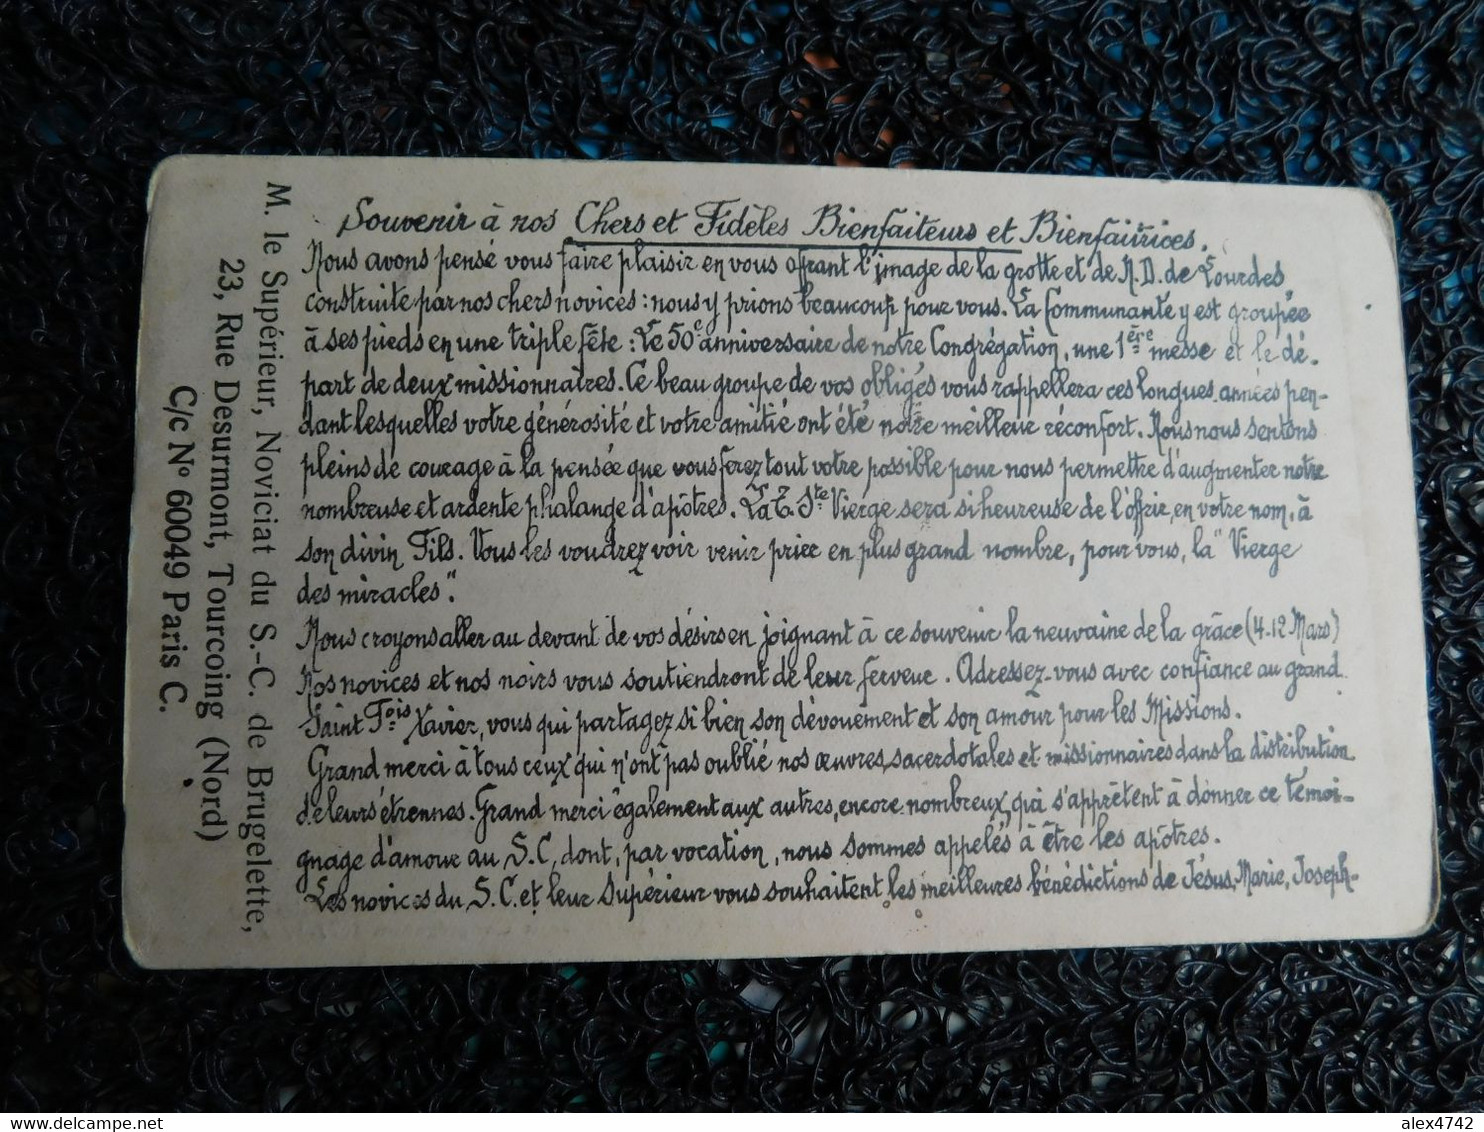 Souvenir à nos Chers et Fidèles Bienfaiteurs et Bienfaitrices.
Nous avons pensé vous faire plaisir en vous offrant l'image de la grotte et de N.D. de Lourdes,
construite par nos chers novices : nous y prions beaucoup pour vous. La Communauté y est groupée
à ses pieds en une triple fête : Le 50e anniversaire de notre Congrégation, une 1ère messe et le dé-
part de deux missionnaires. Ce beau groupe de vos obligés vous rappellera ces longues années pen-
dant lesquelles votre générosité et votre amitié ont été notre meilleur réconfort. Nous nous sentons
pleins de courage à la pensée que vous ferez tout votre possible pour nous permettre d'augmenter notre
nombreuse et ardente phalange d'apôtres. La T. Ste Vierge sera si heureuse de l'offrir, en votre nom, à
son divin Fils. Vous les voudrez voir venir prier en plus grand nombre, pour vous, la "Vierge
des miracles".
Nous croyons aller au devant de vos désirs en joignant à ce souvenir la neuvaine de la grâce (4-12 Mars)
Nos novices et nos noirs vous soutiendront de leur ferveur. Adressez-vous avec confiance au grand
Saint Fois Xavier, vous qui partagez si bien son dévouement et son amour pour les Missions.
Grand merci à tous ceux qui n'ont pas oublié nos œuvres sacerdotales et missionnaires dans la distribution
de leurs étrennes. Grand merci également aux autres, encore nombreux, qui s'apprêtent à donner ce témoi-
gnage d'amour au S.C, dont, par vocation, nous sommes appelés à être les apôtres.
Les novices du S.C. et leur Supérieur vous souhaitent les meilleures bénédictions de Jésus, Marie, Joseph-
M. le Supérieur, Noviciat du S.-C. de Brugelette,
23, Rue Desurmont, Tourcoing (Nord)
C/c No 60049 Paris C.
delcampe.net
alex4742